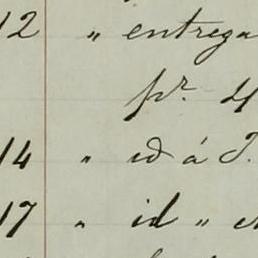 12 " entrega
pr. 4
14 " id á J.
17 " id "